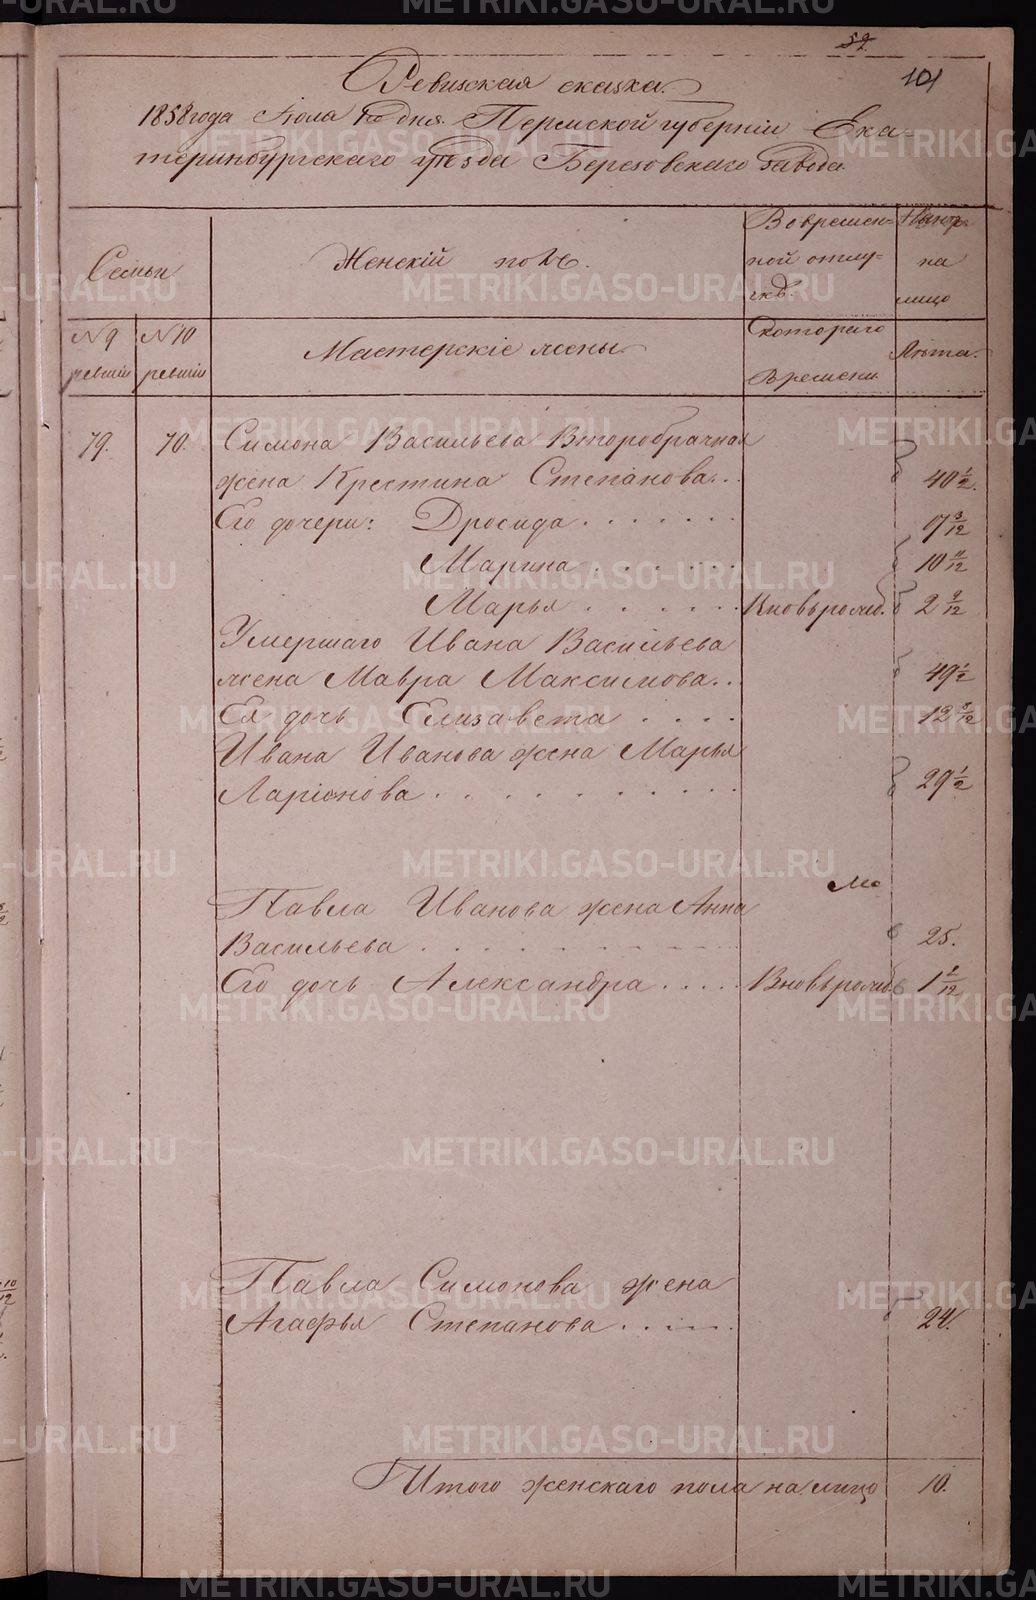 101
Ревизская сказка.
1858 года Июля дня. Пермской губерніи Ека-
теринбургскаго уѣзда Березовскаго завода.
Семьи
Женскій полъ.
Вовремен-
ной отлу-
чкѣ.
Нынѣ
на
лицо
№ 9
ревизіи
№ 10
ревизіи
Мастерскіе жены.
Скотораго
времени
Лѣта.
79. 70. Симона Васильева Второбрачная
жена Крестина Степанова... 40 1/2.
Его дочери: Дросида....... 17 3/12
Марина...... 10 11/12
Марья...... Вновьрожд. 2 9/12
Умершаго Ивана Васильева
жена Мавра Максимова... 49 1/2
Ея дочь Елизавета.... 12 8/12
Ивана Иванова жена Марья
Ларіонова........... 29 1/2
Павла Иванова жена Анна
Васильева......... 25.
Его дочь Александра..... Вновьрожд. 1 2/12
Павла Симонова жена
Агафья Степанова...... 24.
Итого женскаго пола на лицо 10.
METRIKI.GASO-URAL.RU